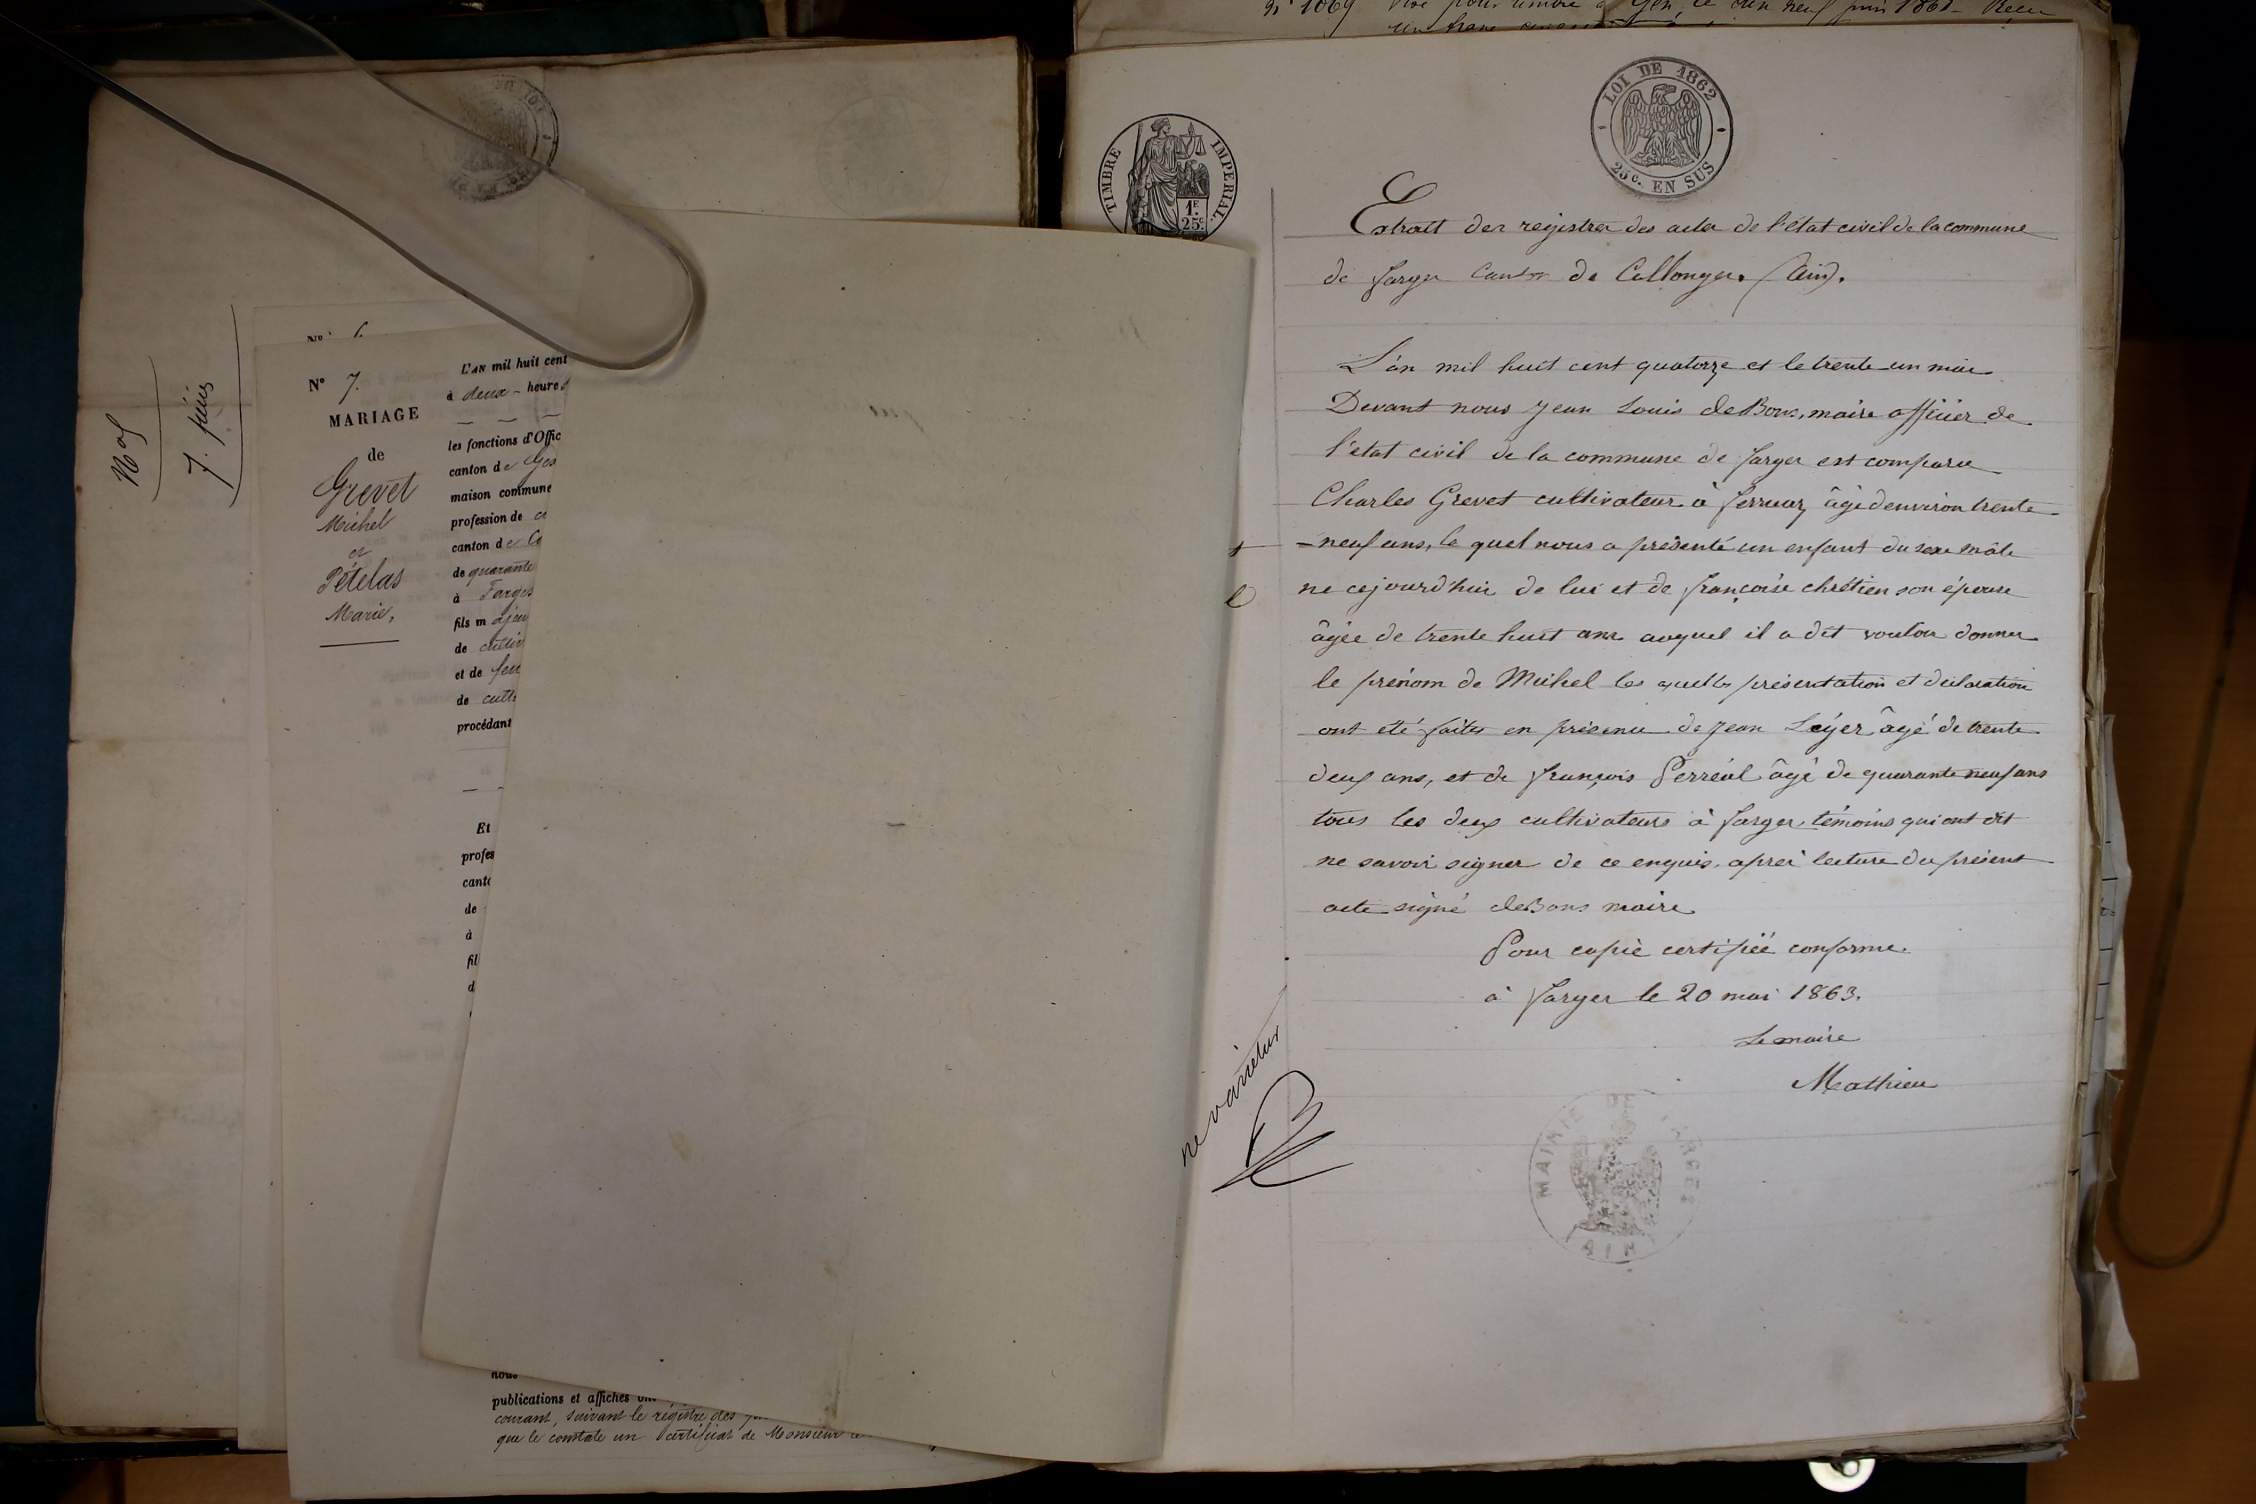 N° 1069
LOI DE 1862
25c. EN SUS
TIMBRE IMPERIAL
1F
25c.
Extrait des registres des actes de l'état civil de la commune
de farges Canton de Collonges. (Ain).
L'an mil huit cent quatorze et le trente un mai
Devant nous Jean Louis deBons, maire officier de
l'état civil de la commune de farges est comparu
Charles Grevet cultivateur à âgé d'environ trente
-neuf ans, le quel nous a présenté un enfant du sexe mâle
ne cejourd'hui de lui et de françoise chrétien son épouse
âgée de trente huit ans auquel il a dit vouloir donner
le prénom de Michel les quelles présentation et déclaration
ont été faites en présence de Jean Léger âgé de trente
deux ans, et de françois Perréal âgé de quarante neuf ans
tous les deux cultivateurs à farges témoins qui ont dit
ne savoir signer de ce enquis, après lecture du présent
acte signé deBons maire
Pour copie certifiée conforme
à farges le 20 mai 1863.
Le maire
Mathieu
MAIRIE DE FARGES
AIN
ne varietur
7. juin
N° 7.
MARIAGE
de
Grevet
Michel
et
Pételas
Marie,
L'AN mil huit cent
à deux - heures
les fonctions d'Offic
canton de Gex
maison commune
profession de
canton de Co
de quarante
à Farges
fils m ajeu
de cultiv
et de feu
de cult
procédant
Et
profes
cant
de
à
fil
d
nous
publications et affiches
courant, suivant le régistre des
que le constate un certificat de Monsieur le